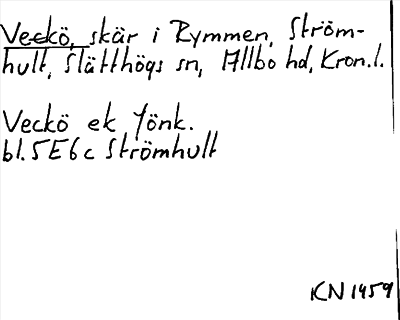 Veckö, skär i Rymmen, Ström-
hult, Slätthögs sn, Allbo hd, Kron.l.
Veckö ek Jönk.
bl. 5E6c Strömhult
KN 1959